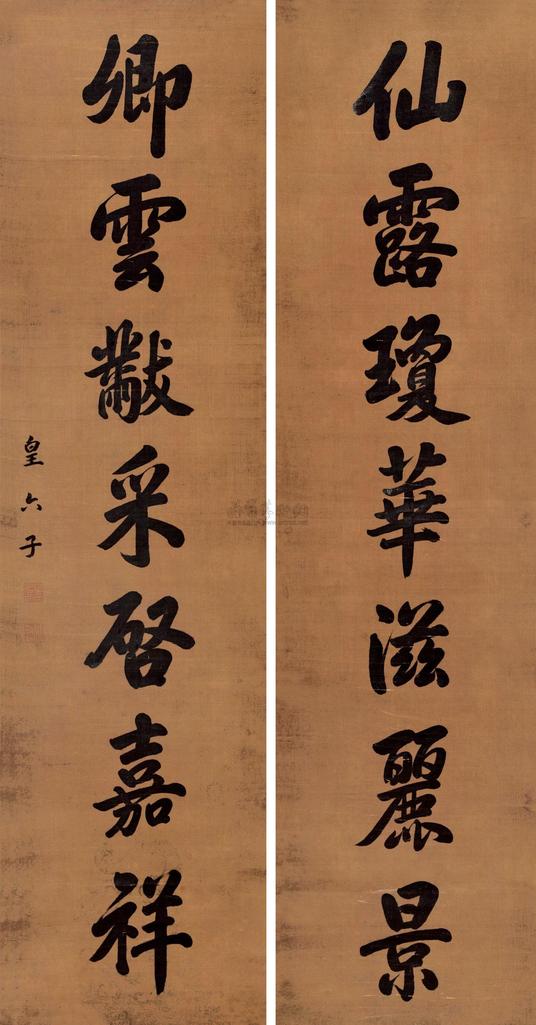 仙露瓊華滋麗景
卿雲黻采啓嘉祥
皇六子